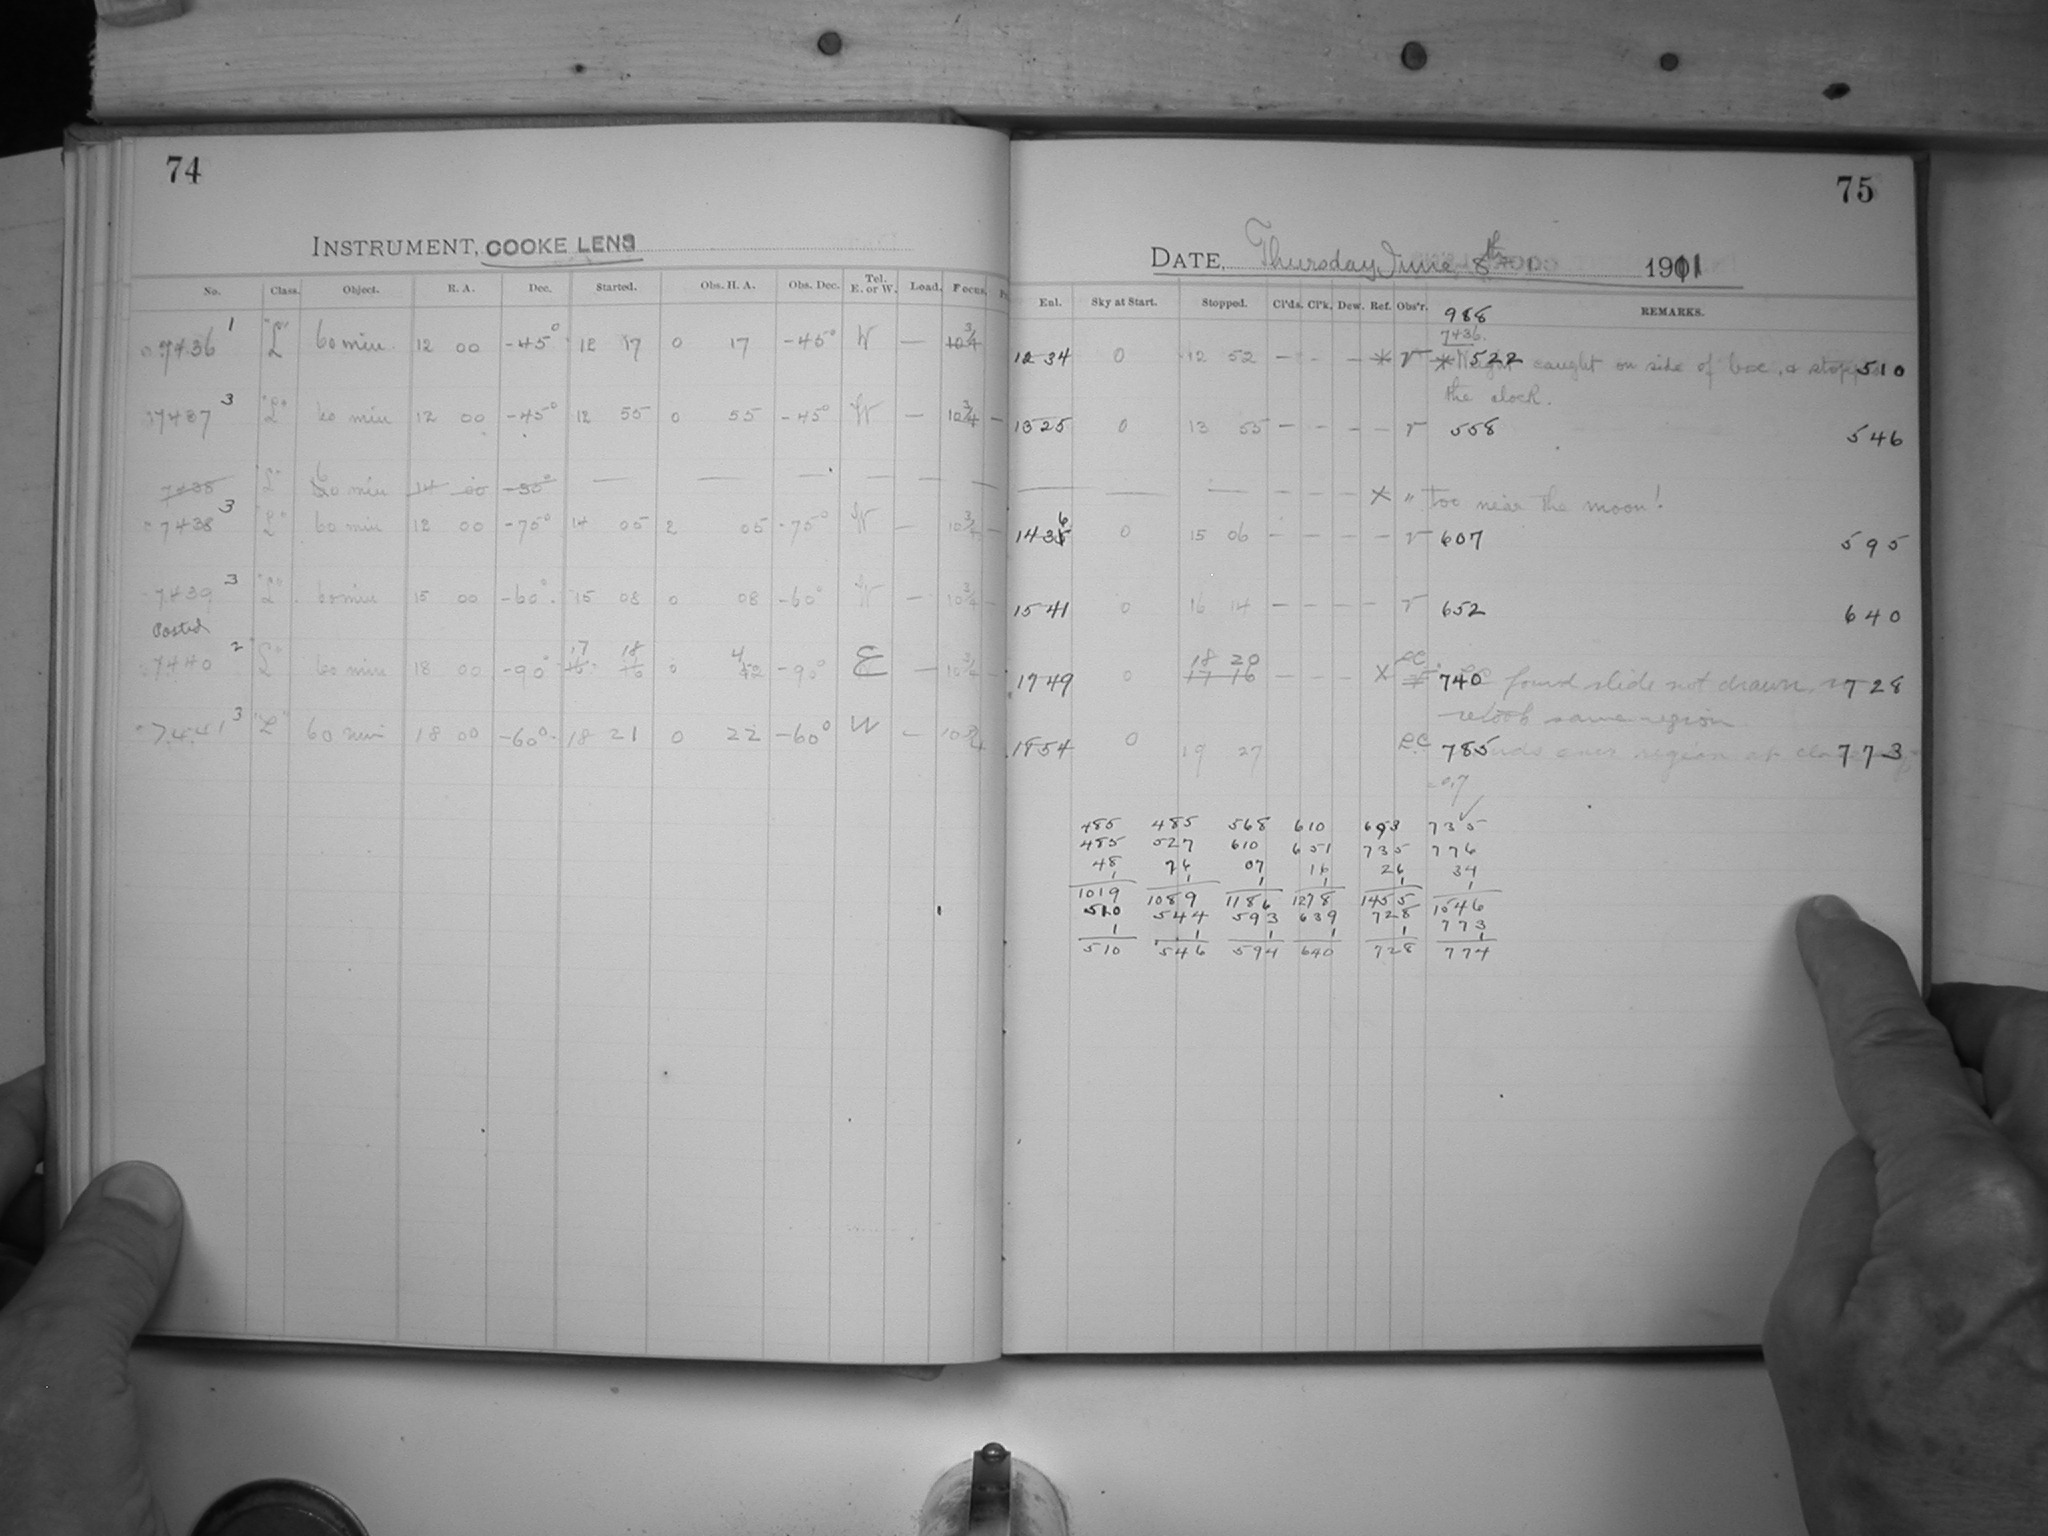 74
INSTRUMENT, COOKE LENS
No. Class. Object. R. A. Dec. Started. Obs. H. A. Obs. Dec. Tel. E. or W. Load. Focus.
7436 1 "L" 60 min. 12 00 -45° 12 17 0 17 -45° W — 10 3/4
7437 3 "L" 60 min 12 00 -45° 12 55 0 55 -45° W — 10 3/4 —
7438 "L" 60 min 14 00 -30° — — — — — —
7438 3 "L" 60 min 12 00 -75° 14 05 2 05 -75° W — 10 3/4 —
7439 3 "L" 60 min 15 00 -60° 15 08 0 08 -60° W — 10 3/4 —
Posted
7440 2 "L" 60 min 18 00 -90° 17 18 0 42 -90° E — 10 3/4 —
7441 3 "L" 60 min 18 00 -60° 18 21 0 22 -60° W — 10 3/4
75
DATE, Thursday June, 8th 1911
Enl. Sky at Start. Stopped. Cl'ds. Cl'k. Dew. Ref. Obs'r. REMARKS.
988
7436
12 34 0 12 52 — - — * r * Weight caught on side of box, & stopped 522 510
the clock.
13 25 0 13 55 — - — - r 558 546
— — — - - - X " Too near the moon!
14 36 0 15 06 - - - - r 607 595
15 41 0 16 14 — — — — r 652 640
17 49 0 18 20 17 16 - - - X LC 740 LC found slide not drawn, so 728
retook same region
18 54 0 19 27 LC 785 clouds over region at close 773
-0,7
485 485 568 610 693 735
485 527 610 651 735 776
48 76 07 16 26 34
1 1 1 1 1 1
1019 1089 1186 1278 1455 1546
510 544 593 639 728 773
1 1 1 1 1 1
510 546 594 640 728 774